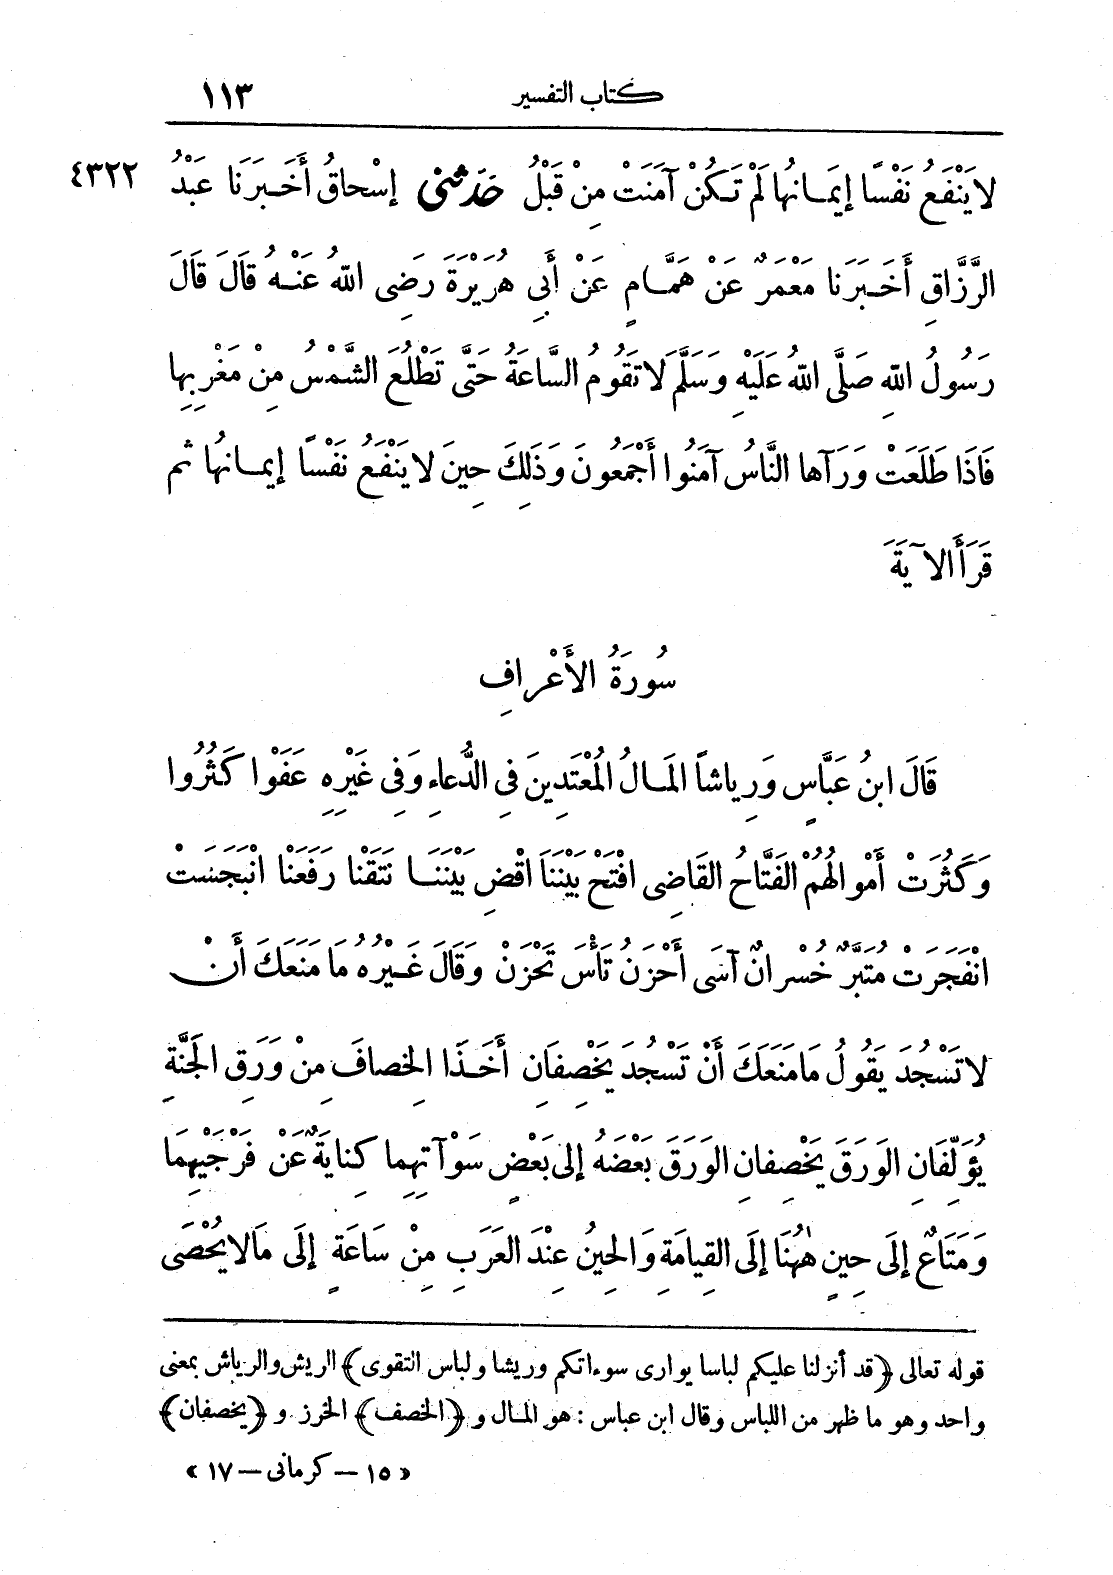 كتاب التفسير ١١٣
لا يَنْفَعُ نَفْسًا إيمَانُهَا لَمْ تَكُنْ آمَنَتْ مِنْ قَبْلُ حَدَّثَنِي إسْحاقُ أَخْبَرَنَا عَبْدُ ٤٣٢٢
الرَّزَّاقِ أَخْبَرَنَا مَعْمَرٌ عَنْ هَمَّامٍ عَنْ أَبِي هُرَيْرَةَ رَضِىَ اللهُ عَنْهُ قَالَ قَالَ
رَسُولُ اللهِ صَلَّى اللهُ عَلَيْهِ وَسَلَّمَ لَا تَقُومُ السَّاعَةُ حَتَّى تَطْلُعَ الشَّمْسُ مِنْ مَغْرِبِها
فَاذَا طَلَعَتْ وَرَآها النَّاسُ آمَنُوا أَجْمَعُونَ وَذَلِكَ حِينَ لا يَنْفَعُ نَفْسًا إيمانُهَا ثم
قَرَأَ الآيَةَ
سُورَةُ الأَعْرافِ
قَالَ ابنُ عَبَّاسٍ وَرِياشًا المَالُ المُعْتَدِينَ فِي الدُّعاءِ وَفِي غَيْرِهِ عَفَوْا كَثُرُوا
وَكَثُرَتْ أَمْوالُهُمْ الفَتَّاحُ القَاضِى افْتَحْ بَيْنَنَا اقْضِ بَيْنَنَا نَتَقْنا رَفَعْنا انْبَجَسَتْ
انْفَجَرَتْ مُتَبَّرٌ خُسْرانٌ آسَى أَحْزَنُ تَأْسَ تَحْزَنْ وقَالَ غَيْرُهُ مَا مَنَعَكَ أَنْ
لا تَسْجُدَ يَقُولُ مَا مَنَعَكَ أَنْ تَسْجُدَ يَخْصِفَانِ أَخَذَا الخِصافَ مِنْ وَرَقِ الجَنَّةِ
يُؤَلِّفَانِ الوَرَقَ يَخْصِفانِ الوَرَقَ بَعْضَهُ إلى بَعْضٍ سَوْآتِهِما كِنايَةٌ عَنْ فَرْجَيْهِمَا
وَمَتَاعٌ إلَى حِينٍ هٰهُنَا إلَى القِيامَةِ وَالحِينُ عِنْدَ العَرَبِ مِنْ سَاعَةٍ إلَى مَالا يُحْصَى
قوله تعالى ﴿قد أنزلنا عليكم لباسا يوارى سوءاتكم وريشا ولباس التقوى﴾ الريش والرياش بمعنى
واحد وهو ما ظهر من اللباس وقال ابن عباس : هو المال و ﴿الخصف﴾ الخرز و ﴿يخصفان﴾
« ١٥ – كرمانى – ١٧ »